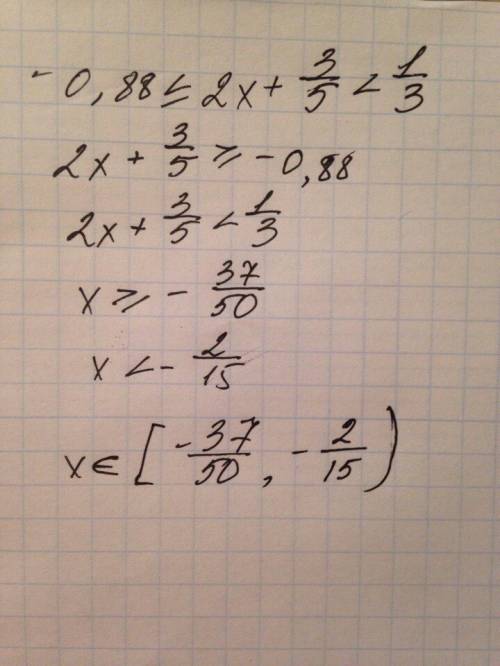 - 0,88 ≤ 2x + 3/5 < 1/3
2x + 3/5 ⩾ - 0,88
2x + 3/5 < 1/3
x ⩾ - 37/50
x < - 2/15
x ∈ [ -37/50 , - 2/15 )